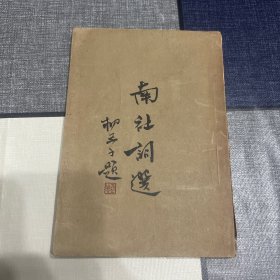 南社詞選
柳亞子題